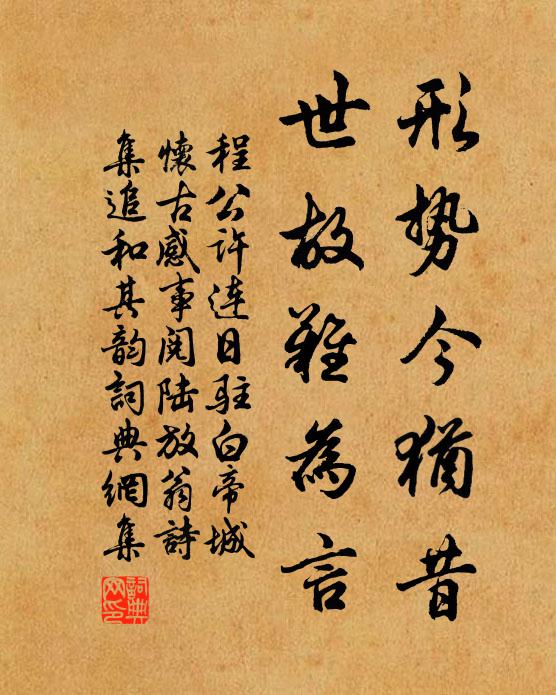 形势今犹昔
世故難為言
程公许连日驻白帝城
懷古感事阅陆放翁詩
集追和其韵詞典網集
詞典网印